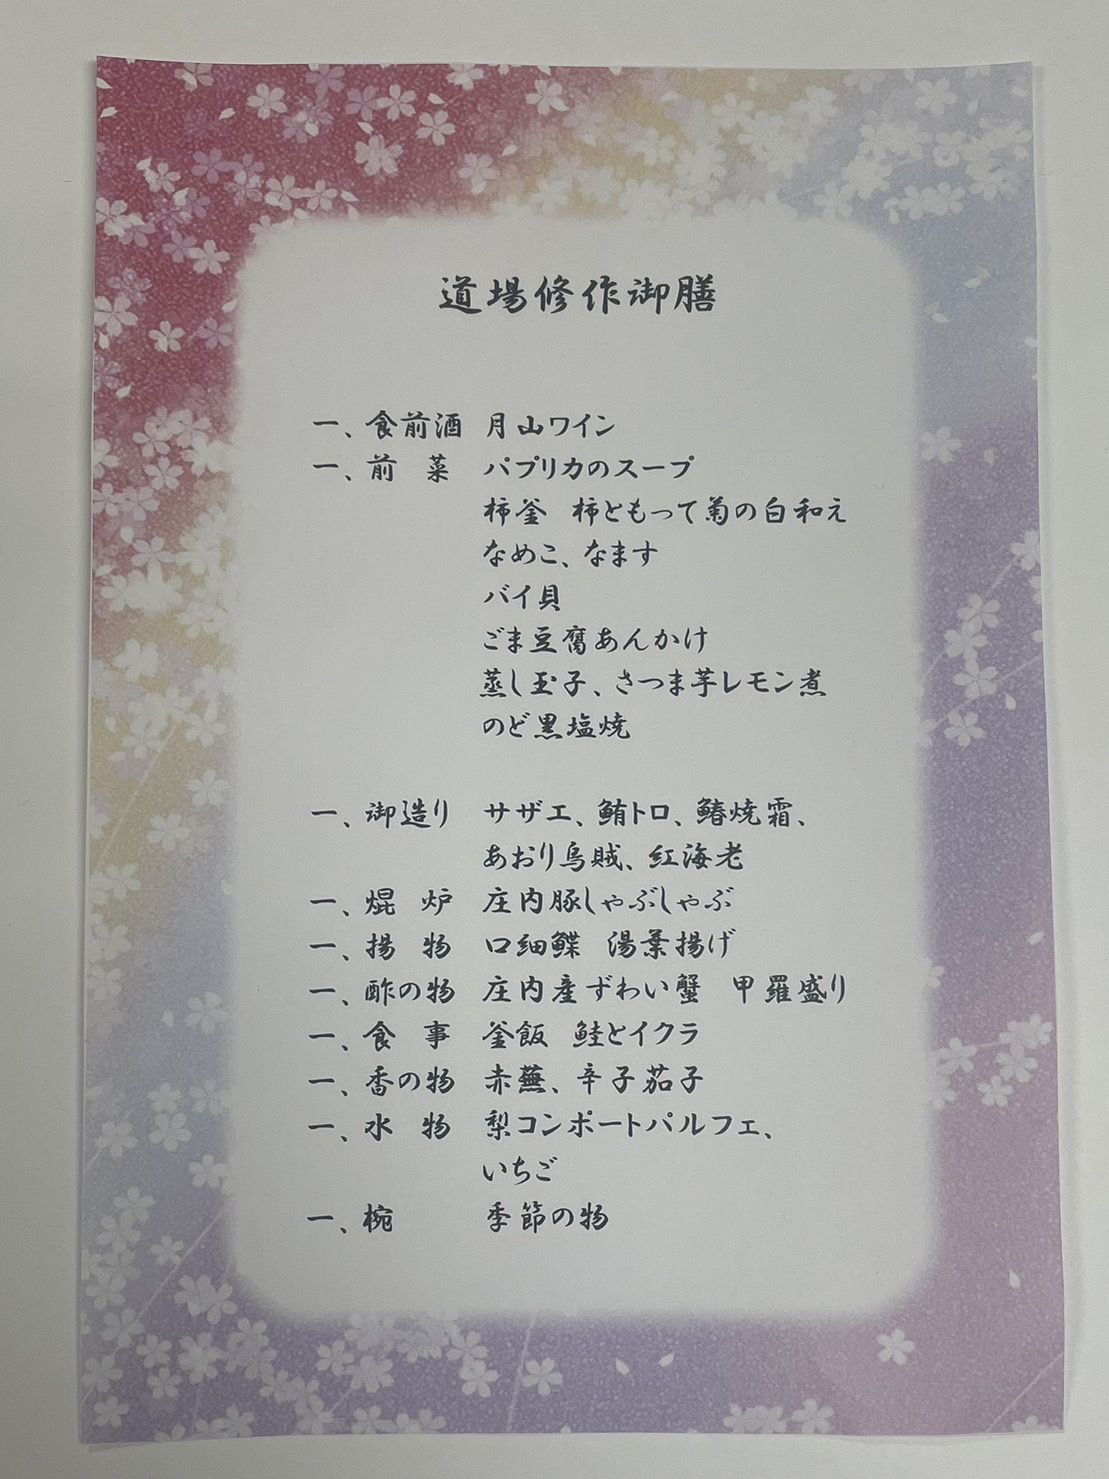 道場修作御膳
一、食前酒 月山ワイン
一、前 菜 パプリカのスープ
柿釜 柿ともって菊の白和え
なめこ、なます
バイ貝
ごま豆腐あんかけ
蒸し玉子、さつま芋レモン煮
のど黒塩焼
一、御造り サザエ、鮪トロ、鰆焼霜、
あおり烏賊、紅海老
一、焜 炉 庄内豚しゃぶしゃぶ
一、揚 物 口細鰈 湯葉揚げ
一、酢の物 庄内産ずわい蟹 甲羅盛り
一、食 事 釜飯 鮭とイクラ
一、香の物 赤蕪、辛子茄子
一、水 物 梨コンポートパルフェ、
いちご
一、椀 季節の物